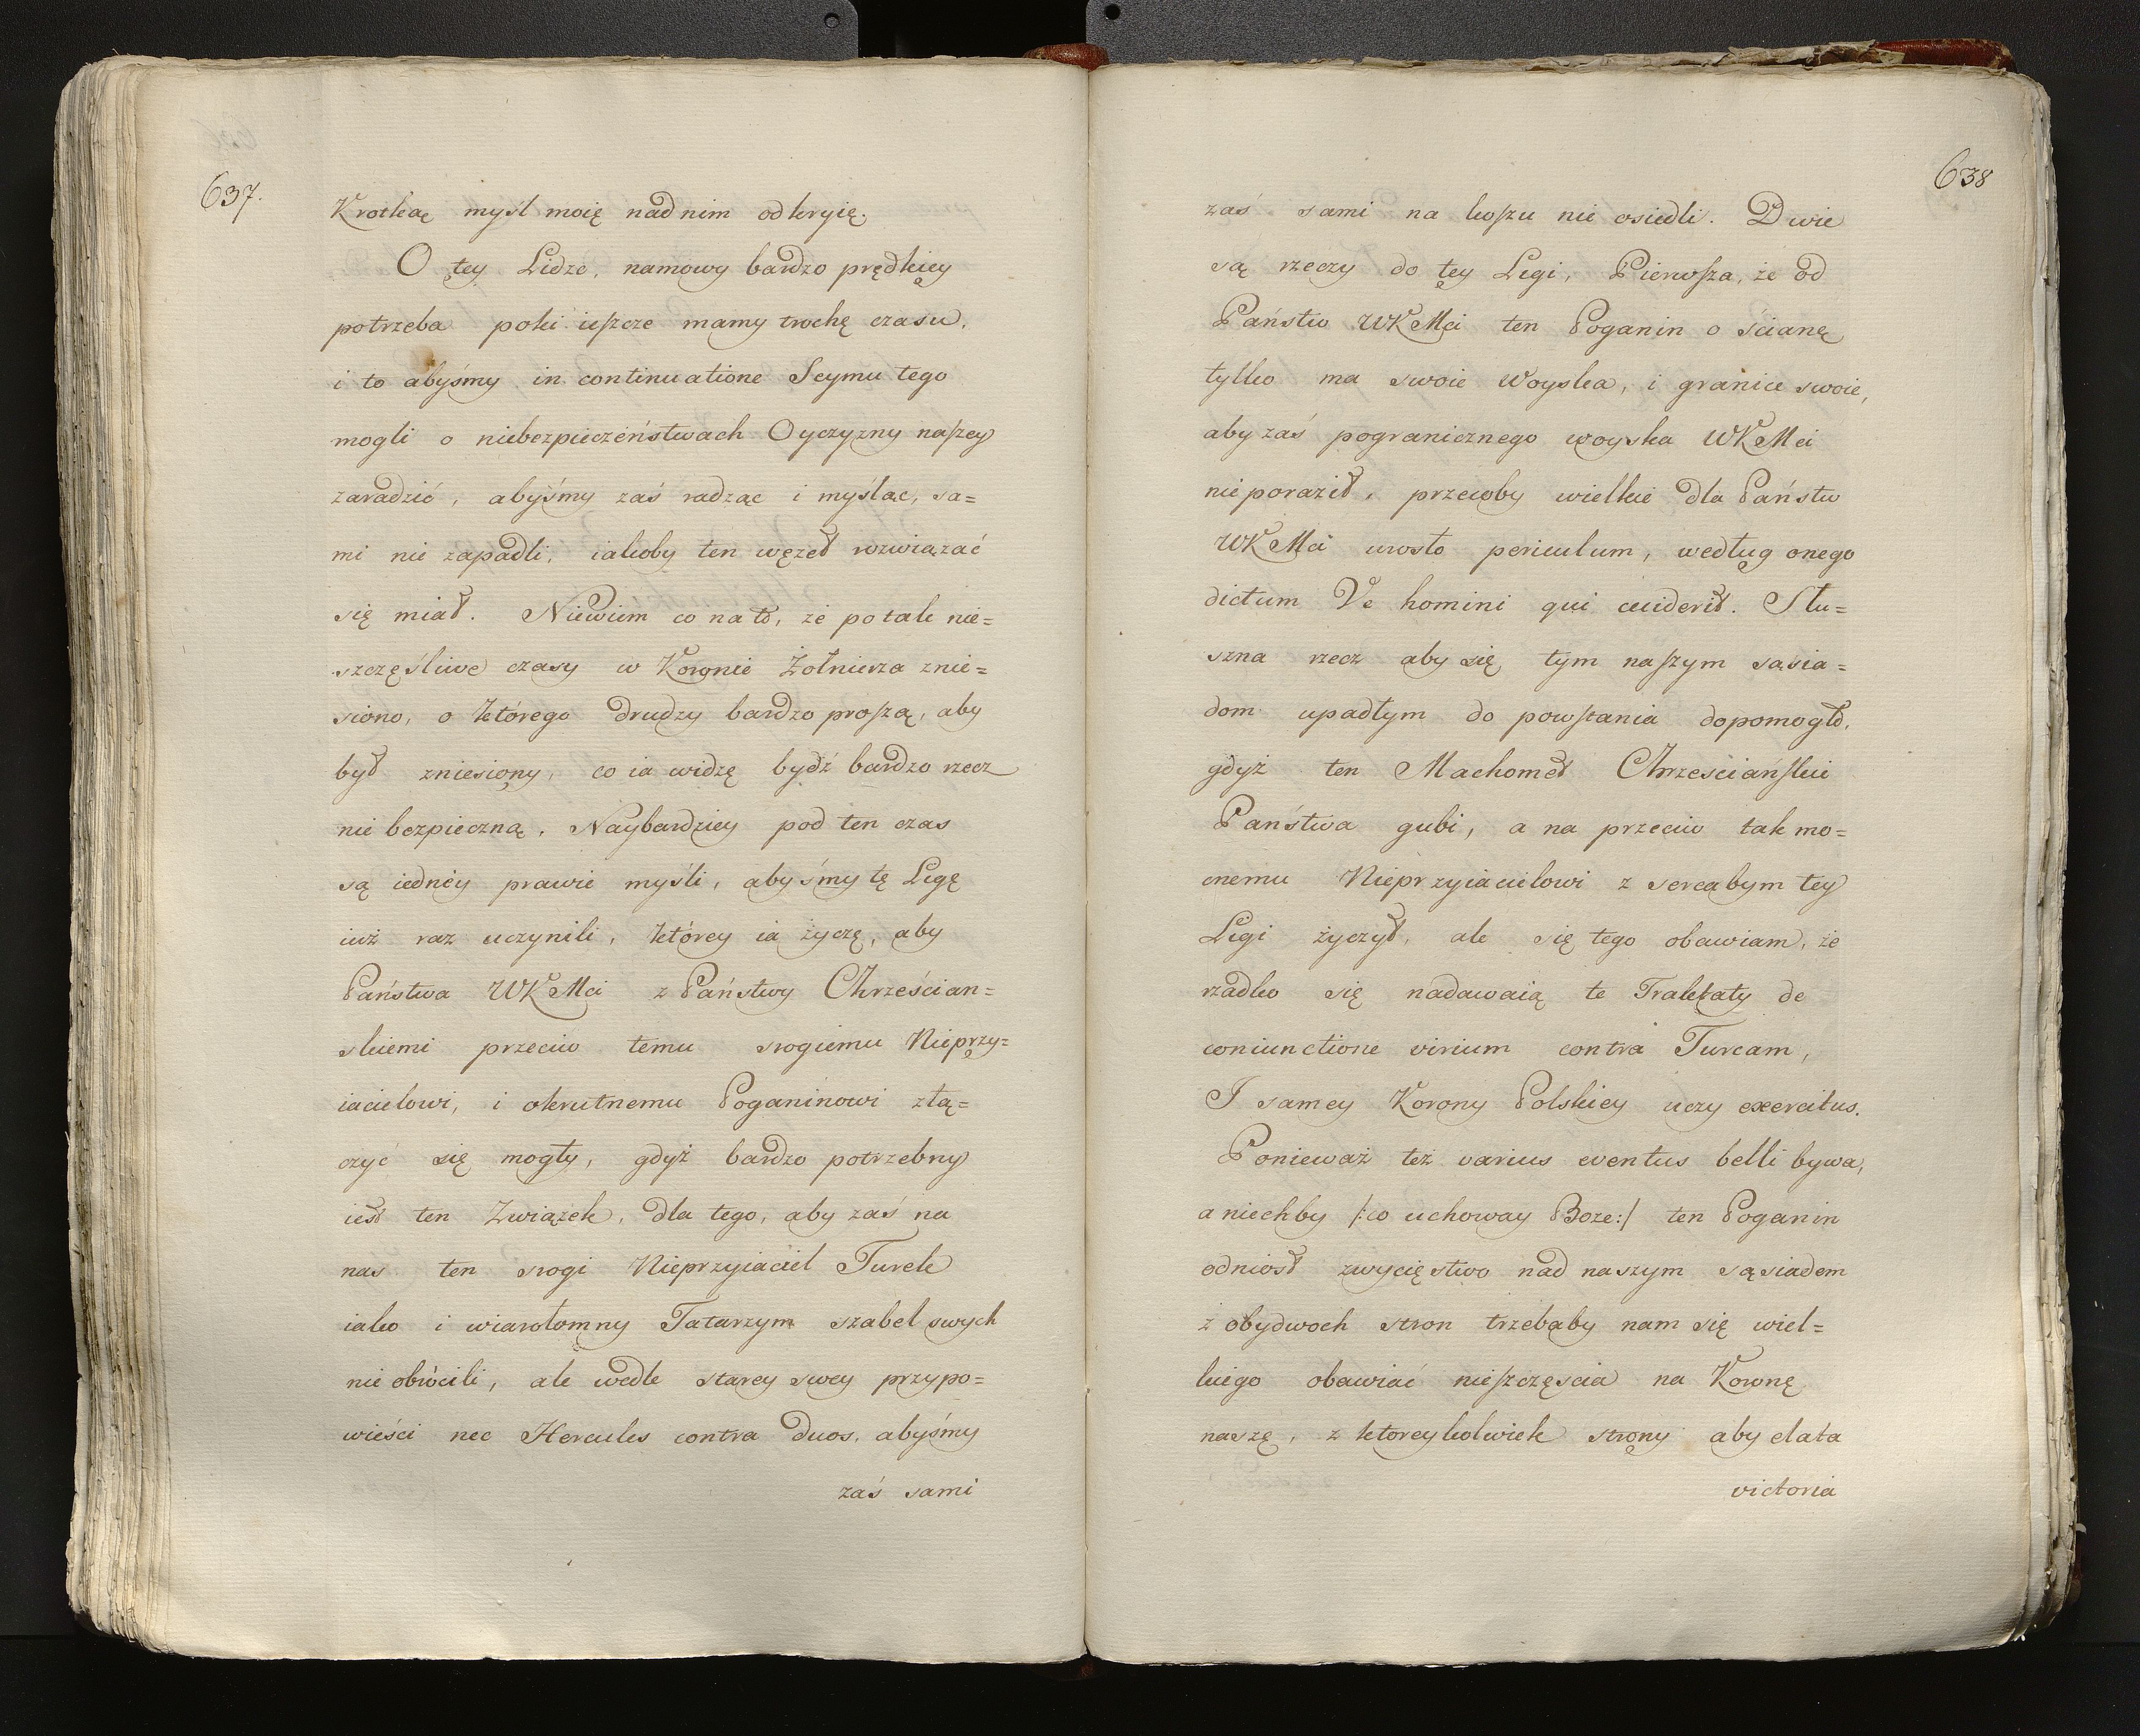 637.
Krotką myśl moię nad nim odkryię.
O tey Lidze, namowy bardzo prędkiey
potrzeba poki ieszcze mamy trochę czasu,
i to abyśmy in continuatione Seymu tego
mogli o niebezpieczeństwach Oyczyzny naszey
zaradzić, abyśmy zaś radząc i myśląc, sa=
mi nie zapadli, iakoby ten węzeł rozwiązać
się miał. Niewiem co na to, że po tak nie=
szczęśliwe czasy w Koronie Żołnierza znie=
siono, o którego drudzy bardzo proszą, aby
był zniesiony, co ia widzę bydź bardzo rzecz
niebezpieczną. Naybardziey pod ten czas
są iedney prawie myśli, abyśmy tę Ligę
iuż raz uczynili, którey ia życzę, aby
Państwa WKMci z Państwy Chrześcian=
skiemi przeciw temu srogiemu Nieprzy=
iacielowi, i okrutnemu Poganinowi złą=
czyć się mogły, gdyż bardzo potrzebny
iest ten Związek, dla tego, aby zaś na
nas ten srogi Nieprzyiaciel Turek
iako i wiarołomny Tatarzym szabel swych
nie obrócili, ale wedle starey swey przypo=
wieści nec Hercules contra duos, abyśmy
zaś sami
638
zas sami na koszu nie osiedli. Dwie
są rzeczy do tey Legi, Pierwsza, że od
Państw WKMci ten Poganin o ścianę
tylko ma swoie Woyska, i granice swoie,
aby zaś pogranicznego woyska WKMci
nie poraził, przecoby wielkie dla Państw
WKMci urosło periculum, według onego
dictum Ve homini qui ceciderit. Słu=
szna rzecz aby się tym naszym sąsia=
dom upadłym do powstania dopomogło,
gdyż ten Machomet Chrześciańskie
Państwa gubi, a na przeciw tak mo=
cnemu Nieprzyiacielowi z sercabym tey
Legi życzył, ale się tego obawiam, że
rzadko się nadawaią te Traktaty de
coniunctione virium contra Turcam,
I samey Korony Polskiey uczy exercitus.
Ponieważ też varius eventus belli bywa,
a niechby /:co uchoway Boze:/ ten Poganin
odniosł zwycięstwo nad naszym sąsiadem
z obydwoch stron trzebaby nam się wiel=
kiego obawiać nieszczęscia na Koronę
naszę, z ktoreykolwiek strony aby elata
victoria